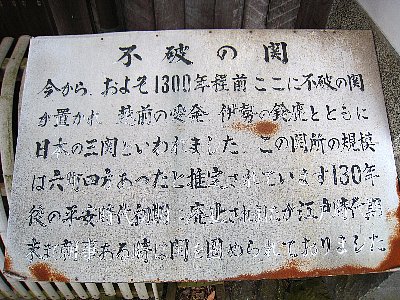 不破の関
今から、およそ1300年程前ここに不破の関
が置かれ 越前の愛発 伊勢の鈴鹿とともに
日本の三関といわれました この関所の規模
は六町四方あったと推定されています130年
後の平安時代初期に廃止されましたが江戸時代
事ある時に関を固められておりました